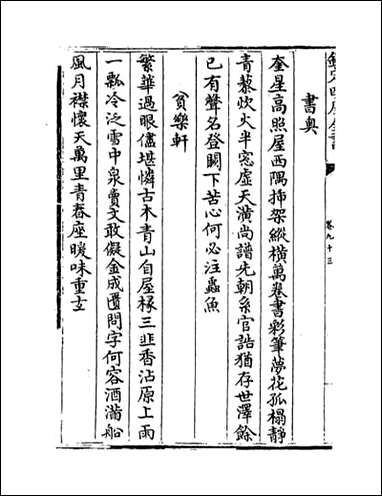 欽定四庫全書
卷九十三
書奥
奎星高照屋西隅揷架縱橫萬卷書彩筆夢花孤榻静
青藜炊火半窓虚天潢尚譜先朝系官誥猶存世澤餘
已有聲名登闕下苦心何必注蟲魚
貧樂軒
繁華過眼儘堪憐古木青山自屋椽三韭香沾原上雨
一瓢冷泛雪中泉賣文敢儗金成匱問字何容酒滿船
風月襟懐天萬里青春座暖味重玄